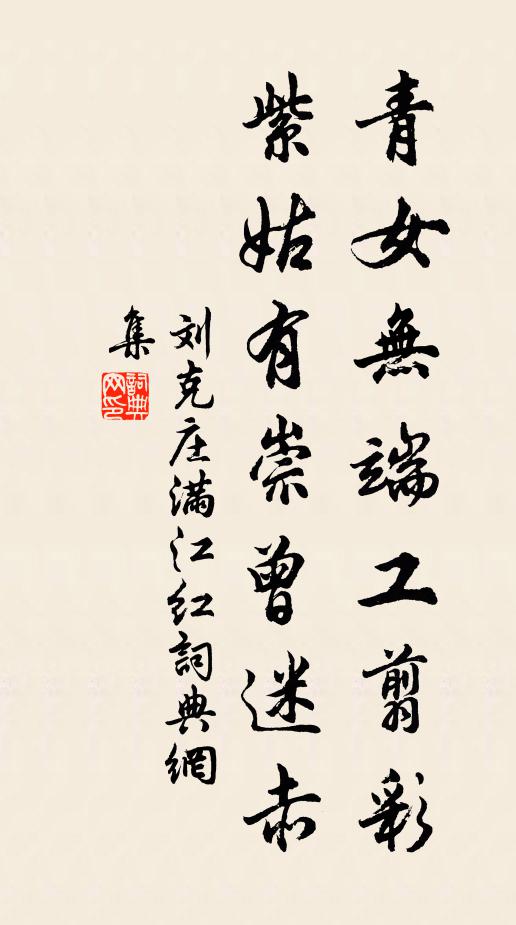 青女無端工翦彩
紫姑有祟曾迷赤
刘克庄满江红詞典網
集
詞典網印